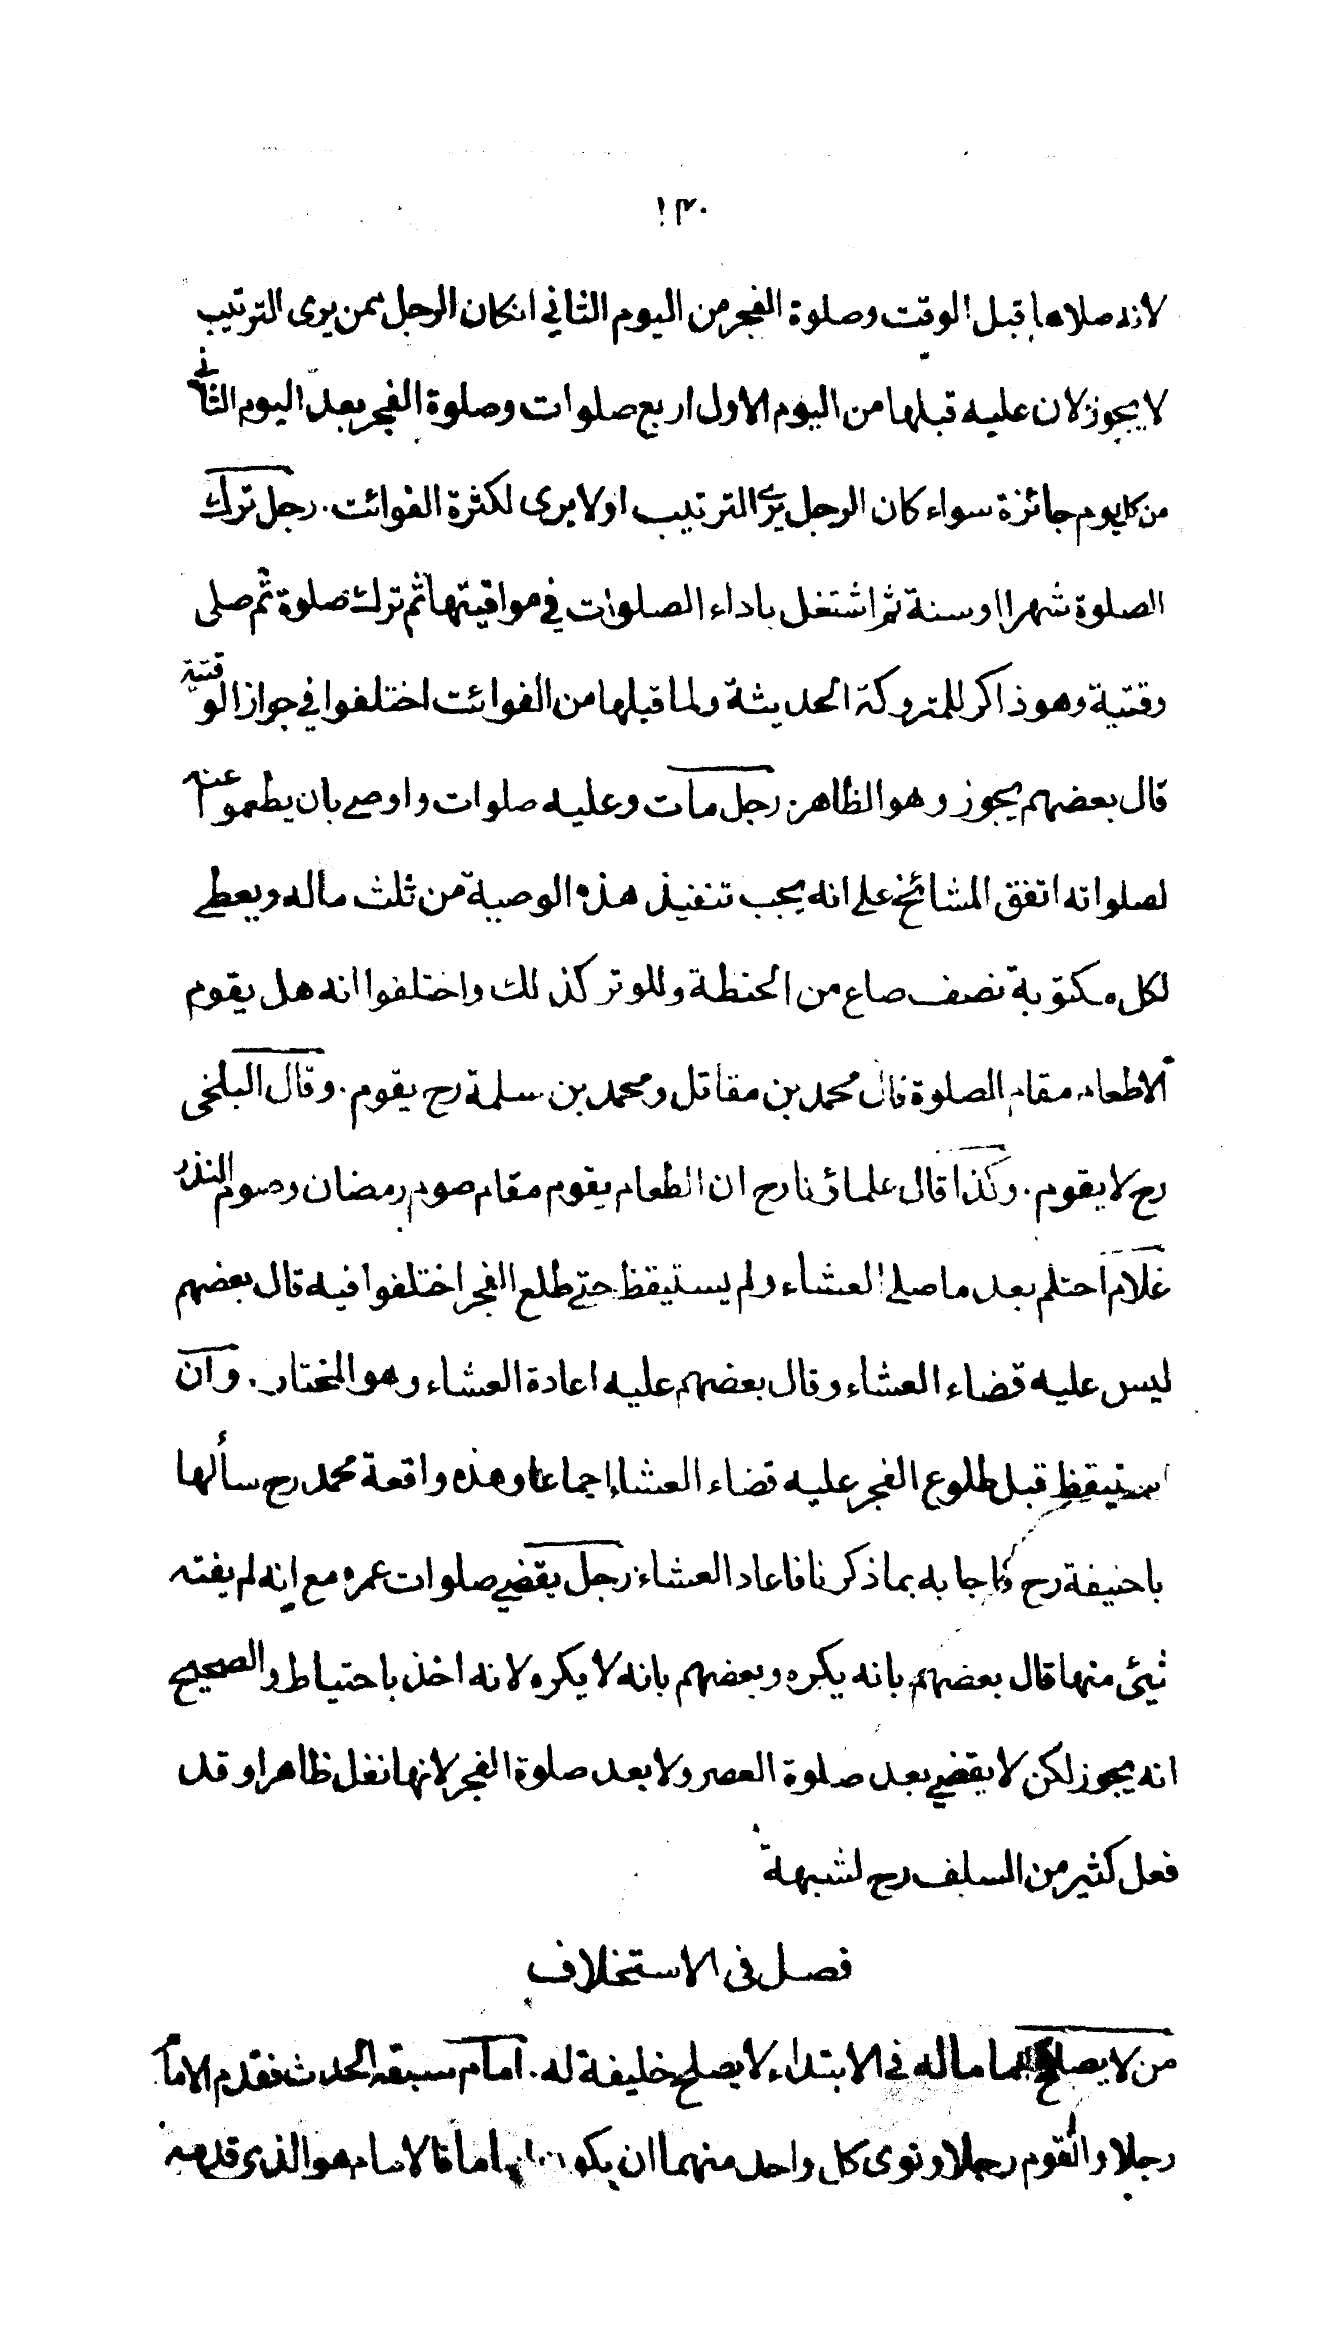 ١٣٠
لانه صلاها قبل الوقت وصلوة الفجر من اليوم الثاني انكان الرجل ممن يرى الترتيب
لا يجوز لان عليه قبلها من اليوم الاول اربع صلوات وصلوة الفجر بعد اليوم الثاني
من كل يوم جائزة سواء كان الرجل يرى الترتيب او لا يرى لكثرة الفوائت . رجل ترك
الصلوة شهرا او سنة ثم اشتغل باداء الصلوات في مواقيتها ثم ترك صلوة ثم صلى
وقتية وهو ذاكر للمتروكة الحديثة ولما قبلها من الفوائت اختلفوا في جواز الوقتية
قال بعضهم يجوز وهو الظاهر . رجل مات وعليه صلوات واوصى بان يطعموا عنه
لصلواته اتفق المشائخ على انه يجب تنفيذ هذه الوصية من ثلث ماله ويعطى
لكل مكتوبة نصف صاع من الحنطة وللوتر كذلك واختلفوا انه هل يقوم
الاطعام مقام الصلوة قال محمد بن مقاتل ومحمد بن سلمة رح يقوم . وقال البلخى
رح لا يقوم . وكذا قال علمائنا رح ان الطعام يقوم مقام صوم رمضان وصوم النذر
غلام احتلم بعد ما صلى العشاء ولم يستيقظ حتى طلع الفجر اختلفوا فيه قال بعضهم
ليس عليه قضاء العشاء وقال بعضهم عليه اعادة العشاء وهو المختار . وان
استيقظ قبل طلوع الفجر عليه قضاء العشاء اجماعا وهذه واقعة محمد رح سألها
باحنيفة رح فاجابه بما ذكرنا فاعاد العشاء . رجل يقضي صلوات عمره مع انه لم يفته
شيئ منها قال بعضهم بانه يكره وبعضهم بانه لا يكره لانه اخذ باحتياط والصحيح
انه يجوز لكن لا يقضي بعد صلوة العصر ولا بعد صلوة الفجر لانها نفل ظاهرا وقد
فعل كثير من السلف رح لشبهة
فصل فى الاستخلاف
من لا يصلح اماما له في الابتداء لا يصلح خليفة له . امام سبقه الحدث فقدم الامام
رجلا والقوم رجلا ونوى كل واحد منهما ان يكون اماما فالامام هو الذى قدمه